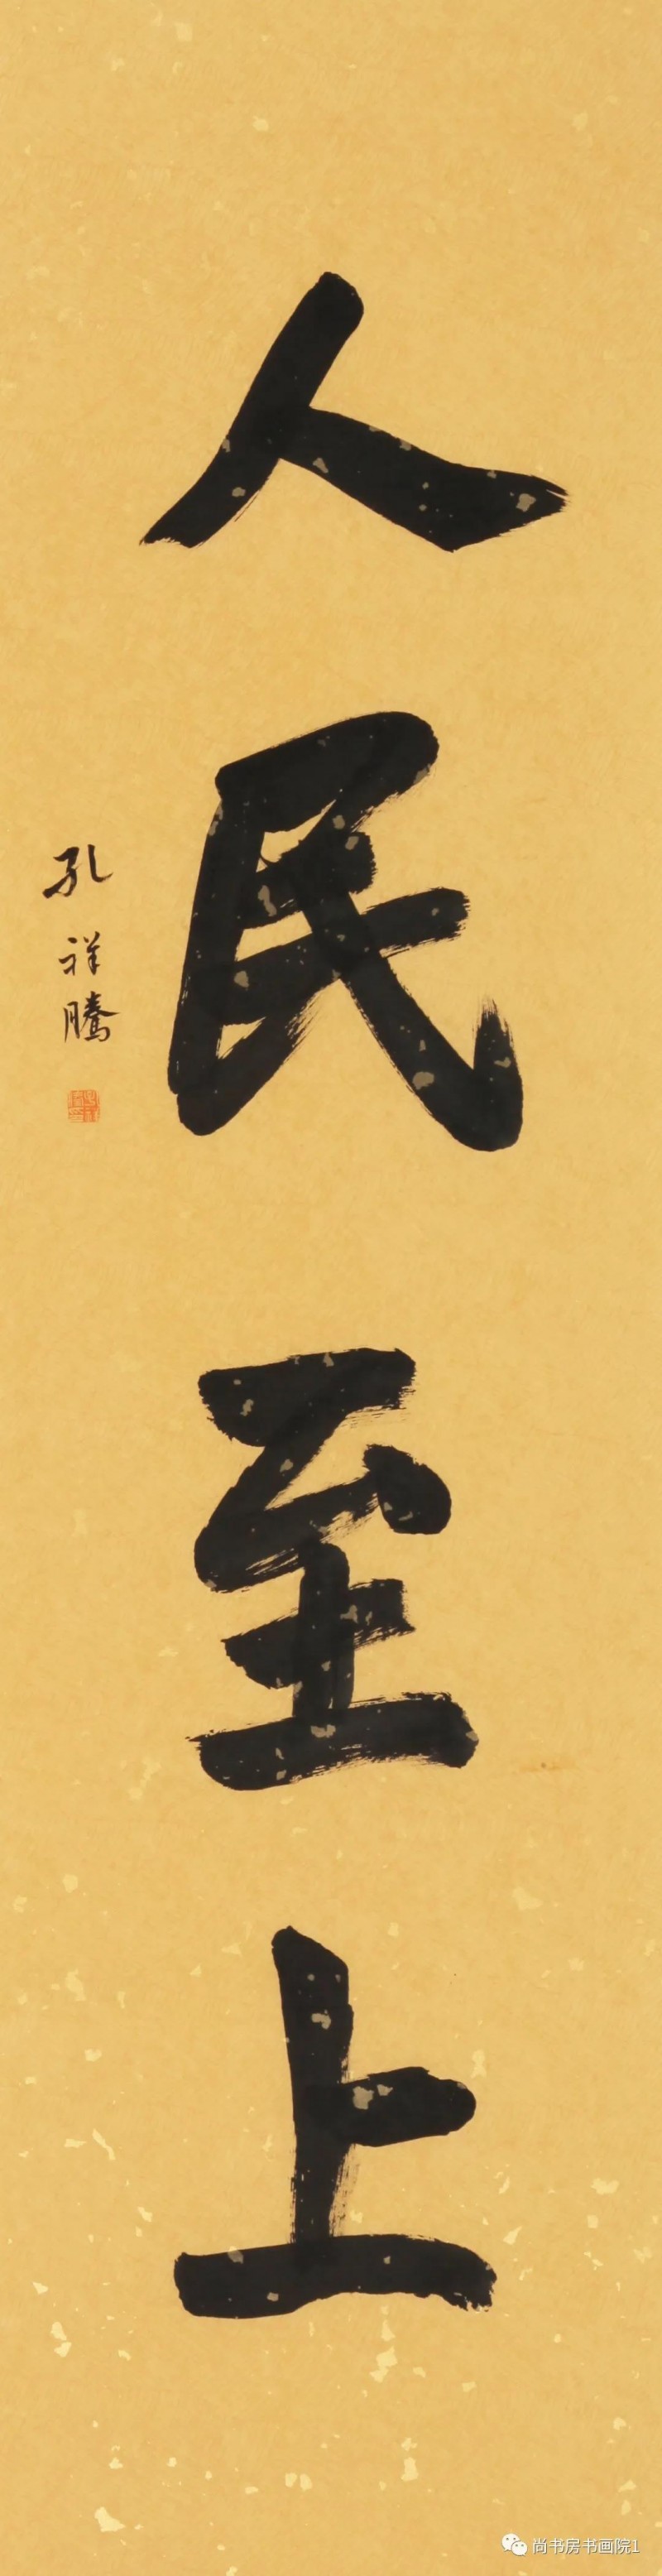 人民至上
孔祥騰
尚书房书画院1